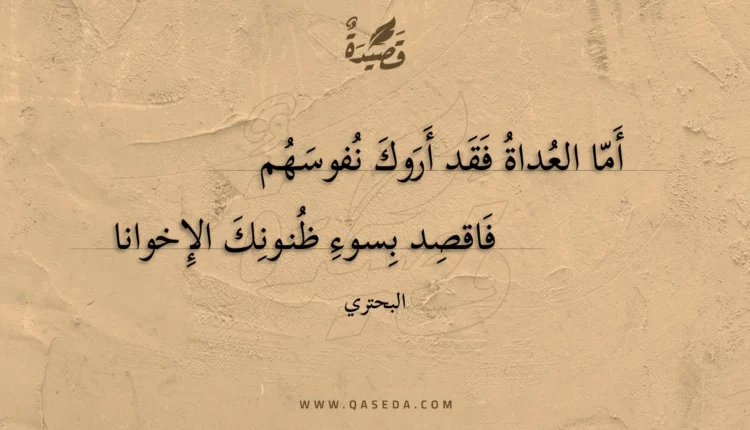 قَصِيدَةٌ
أَمّا العُداةُ فَقَد أَرَوكَ نُفوسَهُم
فَاقصِد بِسوءِ ظُنونِكَ الإِخوانا
البحتري
WWW.QASEDA.COM